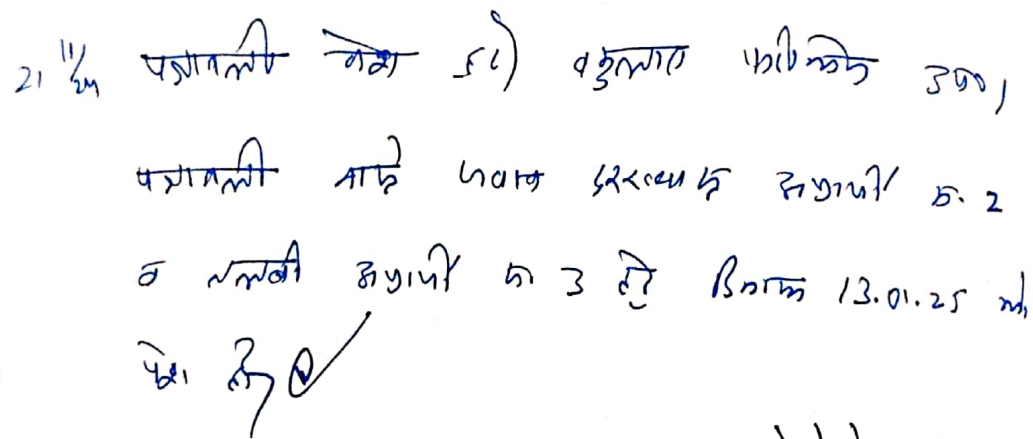 21/11/24 पत्रावली पेश हुई। वकुलाय फरीकेन उप०।
पत्रावली वास्ते जवाब दरख्वास्त अप्रार्थी क्र. 2
व तलबी अप्रार्थी क्र 3 हेतु दिनांक 13.01.25 को
पेश हो।